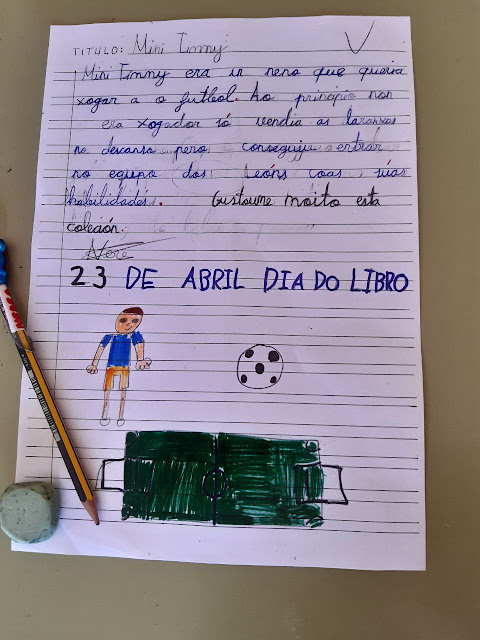 TITULO: Mini Timmy
Mini Timmy era un neno que queria
xogar a o futbol. Ao principio non
era xogador só vendia as laranxas
no descanso pero conseguiu entrar
no equipo dos Leóns coas súas
habilidades. Gustoume moito esta
coleción.
23 DE ABRIL DIA DO LIBRO